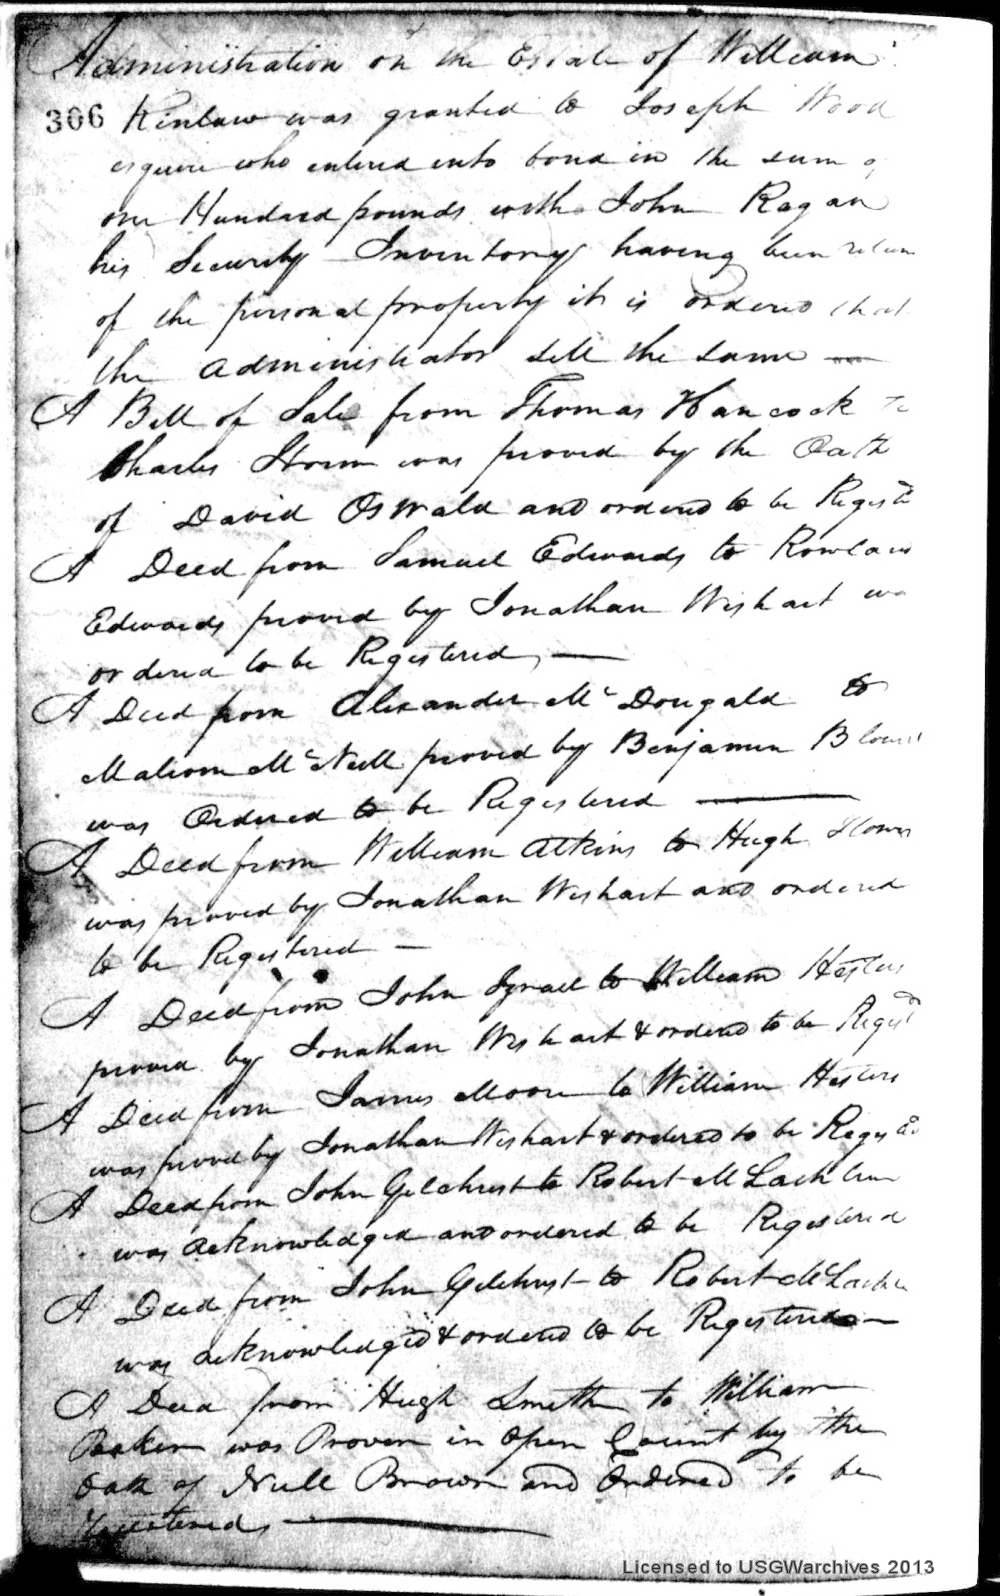 Administration on the Estate of William
306 Kinlaw was granted to Joseph Wood
esquire who entered into bond in the sum
one Hundred pounds with John Ragan
his Security Inventory having been
of the personal property it is ordered that
the administrator sell the same
A Bill of Sale from Thomas Hancock
Charles Storm was proved by the Oath
of David Oswald and ordered to be
A Deed from Samuel Edwards to Rowland
Edwards proved by Jonathan Wishart
ordered to be Registered,
A Deed from Alexander Mc Dougald to
Malcom Mc Neill proved by Benjamin
was Ordered to be Registered
A Deed from William Atkins to Hugh
was proved by Jonathan Wishart and ordered
to be Registered
A Deed from John Israel to William Hesters
proved by Jonathan Wishart & ordered to be Regisd
A Deed from James Moore to William Hesters
was proved by Jonathan Wishart & ordered to be
A Deed from John Gilchrist to Robert McLachlin
was acknowledged and ordered to be Registered
A Deed from John Gilchrist to Robert
was acknowledged & ordered to be Registered
A Deed from Hugh Smith to William
was Proven in Open Court by the
Oath of Neill Brown and Ordered to be
Licensed to USGWarchives 2013